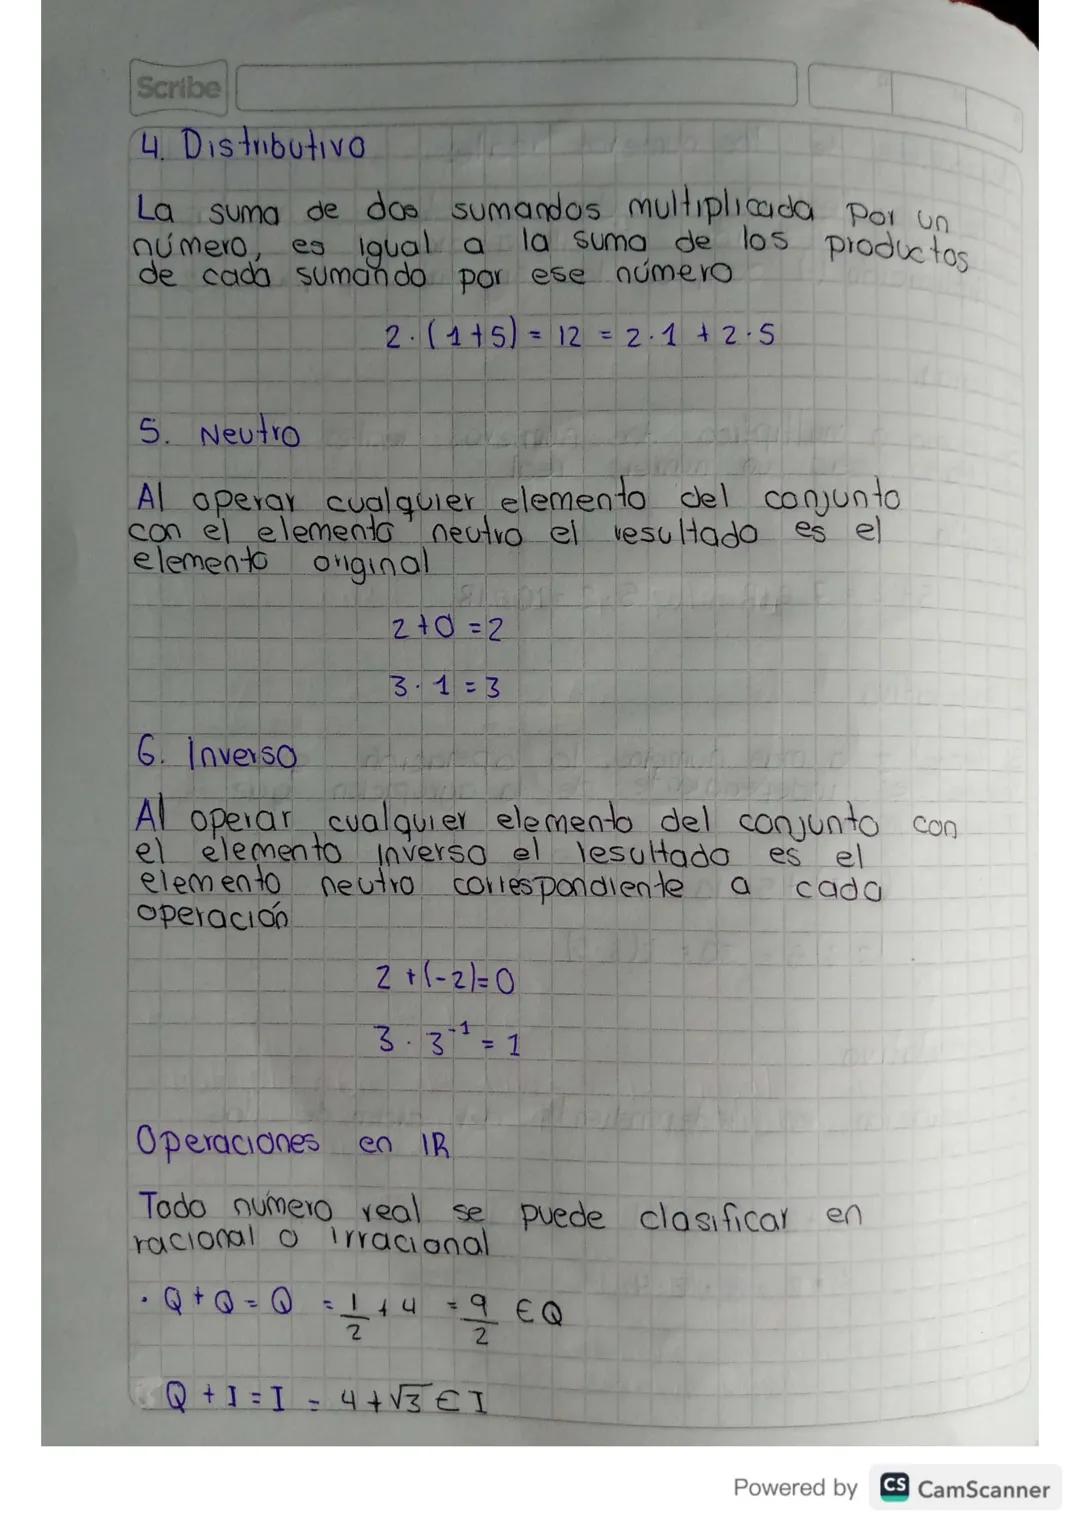 Scribe
4. Distributivo
La suma de dos sumandos multiplicada por un
número, es igual a la suma de los productos
de cada sumando por ese número
2·(1+5) = 12 = 2·1 + 2·5
5. Neutro
Al operar cualquier elemento del conjunto
con el elemento neutro el resultado es el
elemento original
2+0=2
3·1=3
6. Inverso
Al operar cualquier elemento del conjunto con
el elemento inverso el resultado es el
elemento neutro correspondiente a cada
operación
2+(-2)=0
3·3⁻¹=1
Operaciones en IR
Todo número real se puede clasificar en
racional o irracional
· Q+Q=Q = 1/2 + 4 = 9/2 ∈ Q
Q+I=I = 4+√3 ∈ I
Powered by CS CamScanner